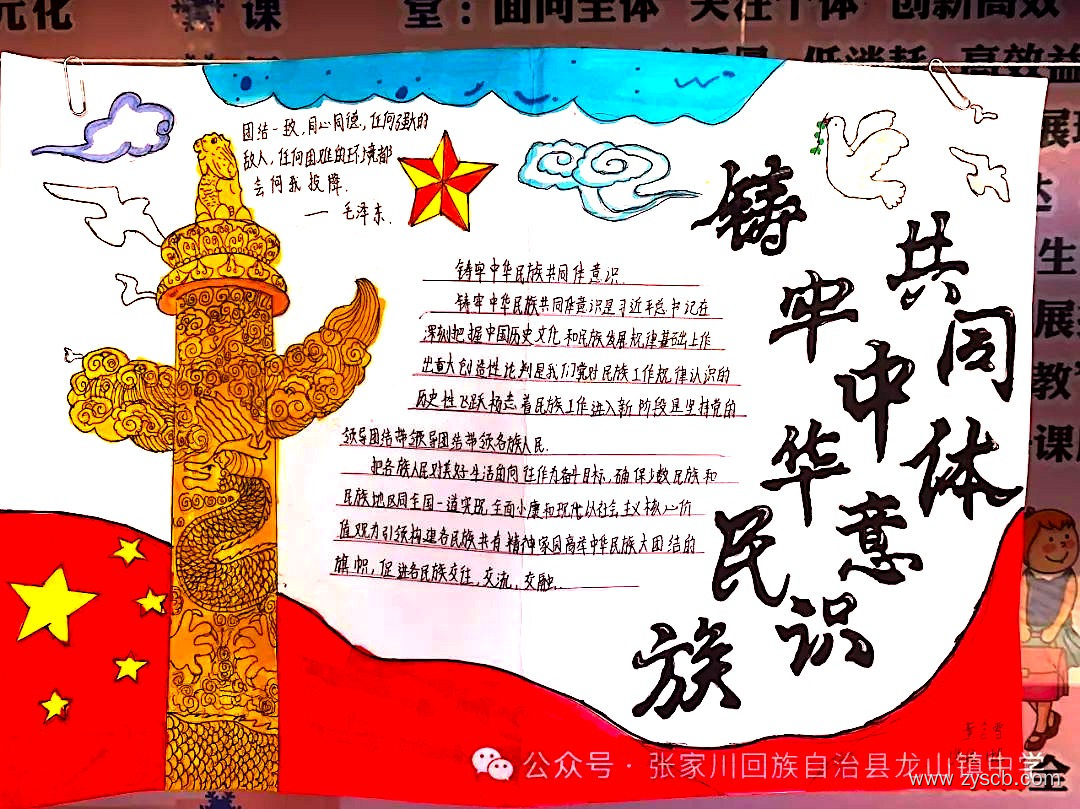 元化
课
堂：面向全体 关注个体 创新高效
低消耗 高效益
展现
达
生
展
教育
课
团结一致，同心同德，任何强大的
敌人，任何困难的环境都
会向我投降.
— 毛泽东.
铸牢中华民族共同体意识.
铸牢中华民族共同体意识是习近平总书记在
深刻把握中国历史文化和民族发展规律基础上作
出重大创造性论判是我们党对民族工作规律认识的
历史性飞跃标志着民族工作进入新阶段是坚持党的
领导团结带领导团结带领各族人民.
把各族人民对美好生活的向往作为奋斗目标，确保少数民族和
民族地区同全国一道实现全面小康和现代以社会主义核心价
值观为引领构建各民族共有精神家园高举中华民族大团结的
旗帜，促进各民族交往，交流，交融.
铸牢中华民族
共同体意识
公众号 · 张家川回族自治县龙山镇中学
www.zyscb.com
全